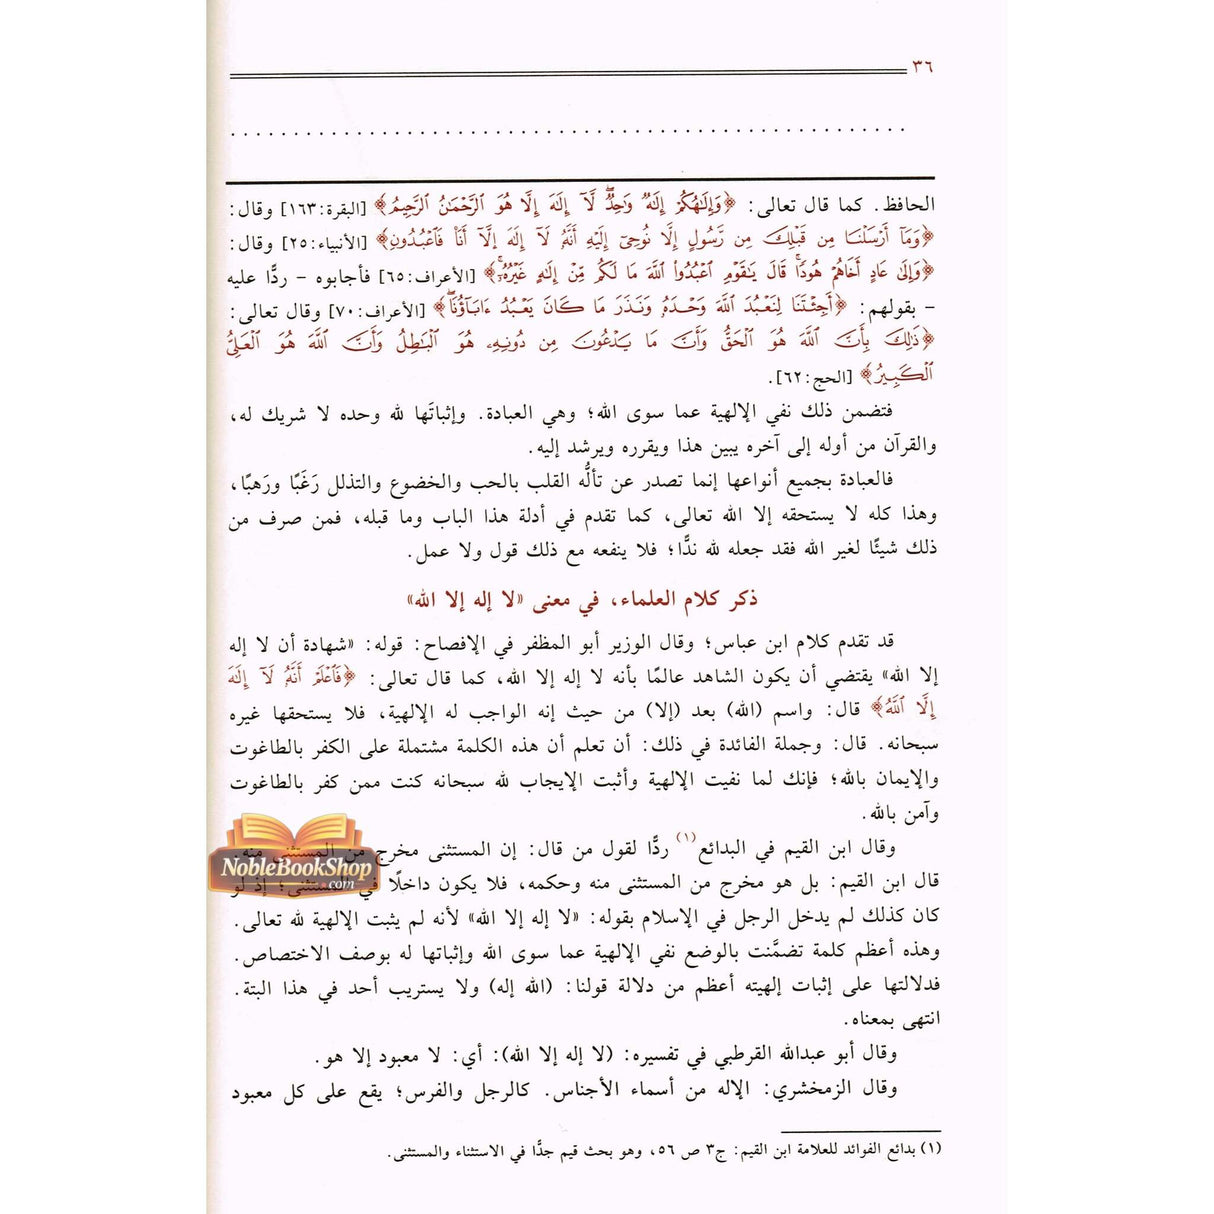 ٣٦
الحافظ. كما قال تعالى: ﴿وَإِلَٰهُكُمْ إِلَٰهٌ وَٰحِدٌ ۖ لَّآ إِلَٰهَ إِلَّا هُوَ ٱلرَّحْمَٰنُ ٱلرَّحِيمُ﴾ [البقرة:١٦٣] وقال:
﴿وَمَآ أَرْسَلْنَا مِن قَبْلِكَ مِن رَّسُولٍ إِلَّا نُوحِىٓ إِلَيْهِ أَنَّهُۥ لَآ إِلَٰهَ إِلَّآ أَنَا۠ فَٱعْبُدُونِ﴾ [الأنبياء:٢٥] وقال:
﴿وَإِلَىٰ عَادٍ أَخَاهُمْ هُودًا ۗ قَالَ يَٰقَوْمِ ٱعْبُدُوا۟ ٱللَّهَ مَا لَكُم مِّنْ إِلَٰهٍ غَيْرُهُۥٓ ۚ﴾ [الأعراف:٦٥] فأجابوه – ردًّا عليه
– بقولهم: ﴿أَجِئْتَنَا لِنَعْبُدَ ٱللَّهَ وَحْدَهُۥ وَنَذَرَ مَا كَانَ يَعْبُدُ ءَابَآؤُنَا ۖ﴾ [الأعراف:٧٠] وقال تعالى:
﴿ذَٰلِكَ بِأَنَّ ٱللَّهَ هُوَ ٱلْحَقُّ وَأَنَّ مَا يَدْعُونَ مِن دُونِهِۦ هُوَ ٱلْبَٰطِلُ وَأَنَّ ٱللَّهَ هُوَ ٱلْعَلِىُّ
ٱلْكَبِيرُ﴾ [الحج:٦٢].
فتضمن ذلك نفي الإلهية عما سوى الله؛ وهي العبادة. وإثباتَها لله وحده لا شريك له،
والقرآن من أوله إلى آخره يبين هذا ويقرره ويرشد إليه.
فالعبادة بجميع أنواعها إنما تصدر عن تألُّه القلب بالحب والخضوع والتذلل رَغَبًا ورَهبًا،
وهذا كله لا يستحقه إلا الله تعالى، كما تقدم في أدلة هذا الباب وما قبله، فمن صرف من
ذلك شيئًا لغير الله فقد جعله لله ندًّا؛ فلا ينفعه مع ذلك قول ولا عمل.
ذكر كلام العلماء، في معنى «لا إله إلا الله»
قد تقدم كلام ابن عباس؛ وقال الوزير أبو المظفر في الإفصاح: قوله: «شهادة أن لا إله
إلا الله» يقتضي أن يكون الشاهد عالمًا بأنه لا إله إلا الله، كما قال تعالى: ﴿فَٱعْلَمْ أَنَّهُۥ لَآ إِلَٰهَ
إِلَّا ٱللَّهُ﴾ قال: واسم (الله) بعد (إلا) من حيث إنه الواجب له الإلهية، فلا يستحقها غيره
سبحانه. قال: وجملة الفائدة في ذلك: أن تعلم أن هذه الكلمة مشتملة على الكفر بالطاغوت
والإيمان بالله؛ فإنك لما نفيت الإلهية وأثبت الإيجاب لله سبحانه كنت ممن كفر بالطاغوت
وآمن بالله.
وقال ابن القيم في البدائع(١) ردًّا لقول من قال: إن المستثنى مخرج من المستثنى منه.
قال ابن القيم: بل هو مخرج من المستثنى منه وحكمه، فلا يكون داخلًا في المستثنى؛ إذ لو
كان كذلك لم يدخل الرجل في الإسلام بقوله: «لا إله إلا الله» لأنه لم يثبت الإلهية لله تعالى.
وهذه أعظم كلمة تضمَّنت بالوضع نفي الإلهية عما سوى الله وإثباتها له بوصف الاختصاص.
فدلالتها على إثبات إلهيته أعظم من دلالة قولنا: (الله إله) ولا يستريب أحد في هذا البتة.
انتهى بمعناه.
وقال أبو عبدالله القرطبي في تفسيره: (لا إله إلا الله): أي: لا معبود إلا هو.
وقال الزمخشري: الإله من أسماء الأجناس. كالرجل والفرس؛ يقع على كل معبود
(١) بدائع الفوائد للعلامة ابن القيم: ج٣ ص ٥٦، وهو بحث قيم جدًّا في الاستثناء والمستثنى.
NobleBookShop
.com